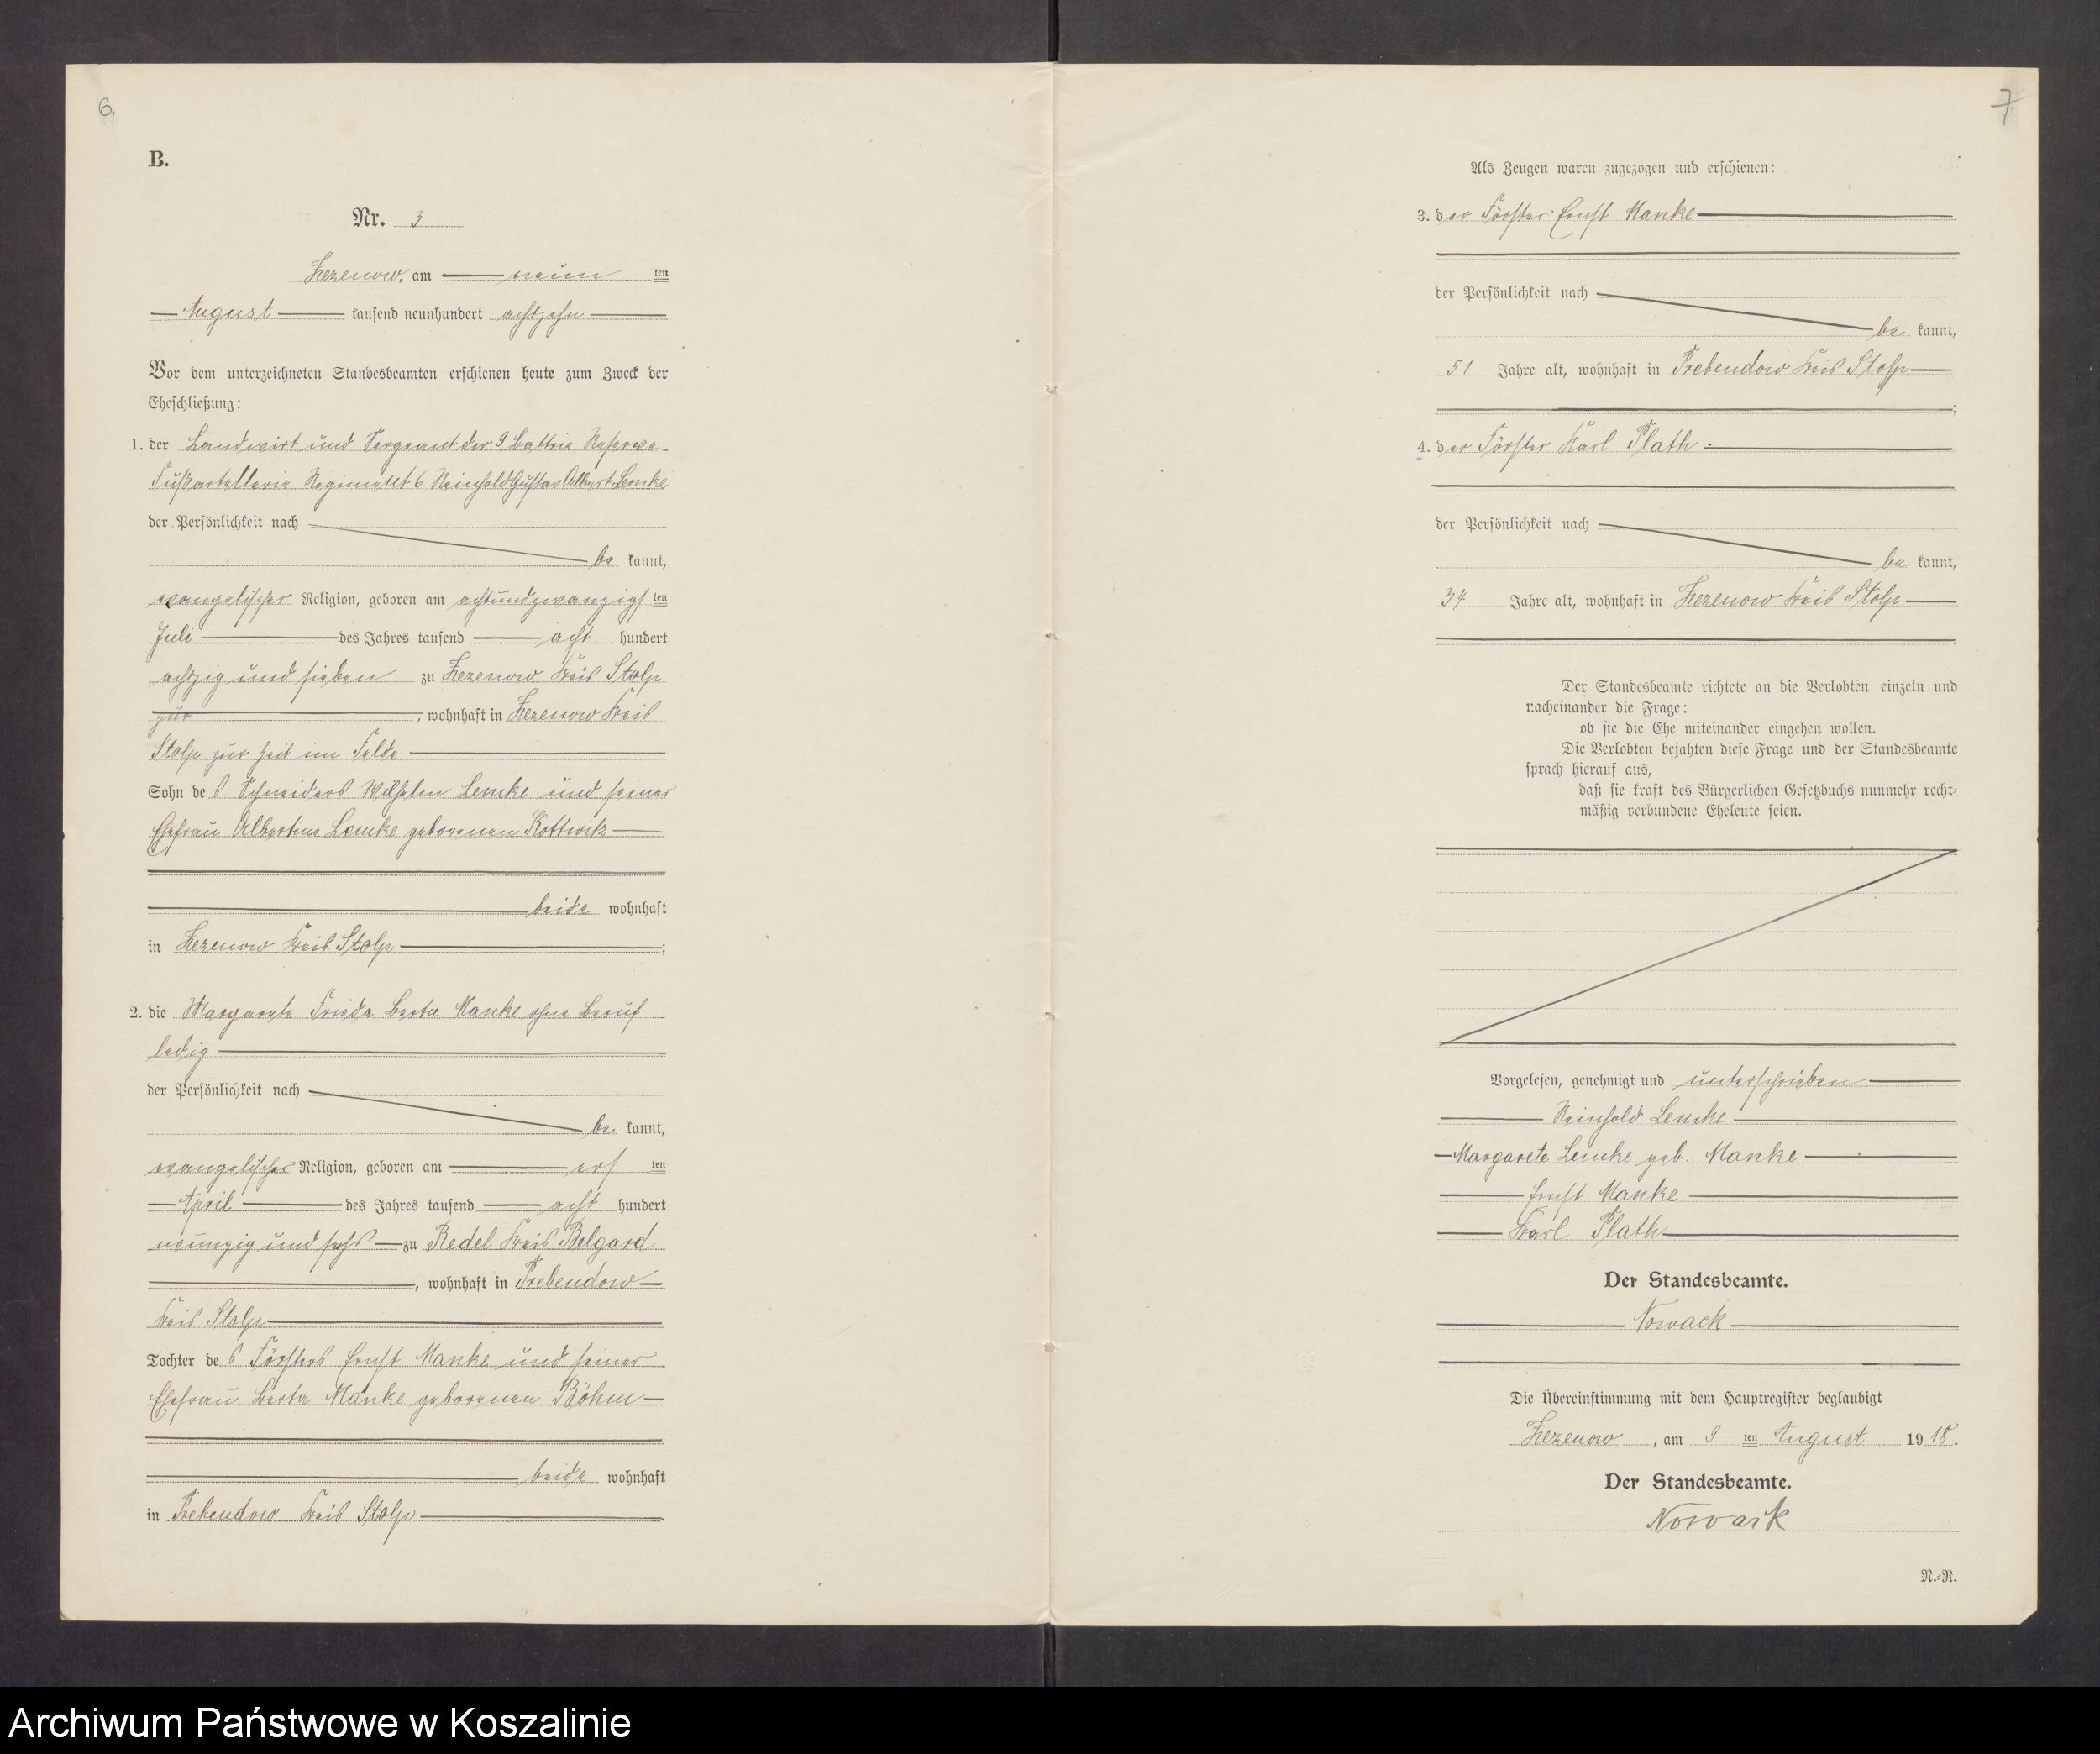 6.
B.
Nr. 3
Zezenow, am neun ten
August tausend neunhundert achtzehn
Vor dem unterzeichneten Standesbeamten erschienen heute zum Zweck der
Eheschließung:
1. der Landwirt und Sergeant der 9 Battrie Reserve-
Fußartellerie Regiment 6. Reinhold Gustav Albert Lemke
der Persönlichkeit nach
be kannt,
evangelischer Religion, geboren am achtundzwanzigs ten
Juli des Jahres tausend acht hundert
achtzig und sieben zu Zezenow Kreis Stolp
zur , wohnhaft in Zezenow Kreis
Stolp zur Zeit im Felde
Sohn des Schneiders Wilhelm Lemke und seiner
Ehefrau Albertine Lemke geborenen Kottwitz
beide wohnhaft
in Zezenow Kreis Stolp ;
2. die Margarete Frieda Berta Manke ohne Beruf
ledig
der Persönlichkeit nach
be kannt,
evangelischer Religion, geboren am ers ten
April des Jahres tausend acht hundert
neunzig und sechs zu Redel Kreis Belgard
, wohnhaft in Prebendow
Kreis Stolp
Tochter des Försters Ernst Manke und seiner
Ehefrau Berta Manke geborenen Böhm
beide wohnhaft
in Prebendow Kreis Stolp
7.
Als Zeugen waren zugezogen und erschienen:
3. der Förster Ernst Manke
der Persönlichkeit nach
be kannt,
51 Jahre alt, wohnhaft in Prebendow Kreis Stolp
;
4. der Förster Karl Plath
der Persönlichkeit nach
be kannt,
34 Jahre alt, wohnhaft in Zezenow Kreis Stolp
Der Standesbeamte richtete an die Verlobten einzeln und
nacheinander die Frage:
ob sie die Ehe miteinander eingehen wollen.
Die Verlobten bejahten diese Frage und der Standesbeamte
sprach hierauf aus,
daß sie kraft des Bürgerlichen Gesetzbuchs nunmehr recht-
mäßig verbundene Eheleute seien.
Vorgelesen, genehmigt und unterschrieben
Reinhold Lemke
Margarete Lemke geb. Manke
Ernst Manke
Karl Plath
Der Standesbeamte.
Nowack
Die Übereinstimmung mit dem Hauptregister beglaubigt
Zezenow , am 9 ten August 1918.
Der Standesbeamte.
Nowack
N.-R.
Archiwum Państwowe w Koszalinie